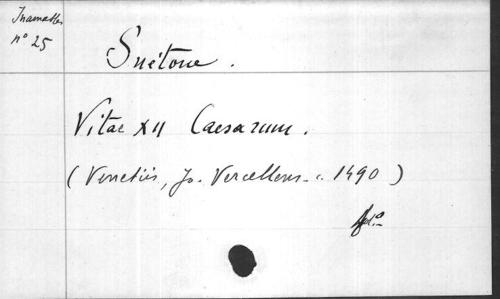 n° 25
Suétone.
Vitae XII Caesarum.
(Venetiis, Jo. Vercellens. c. 1490)